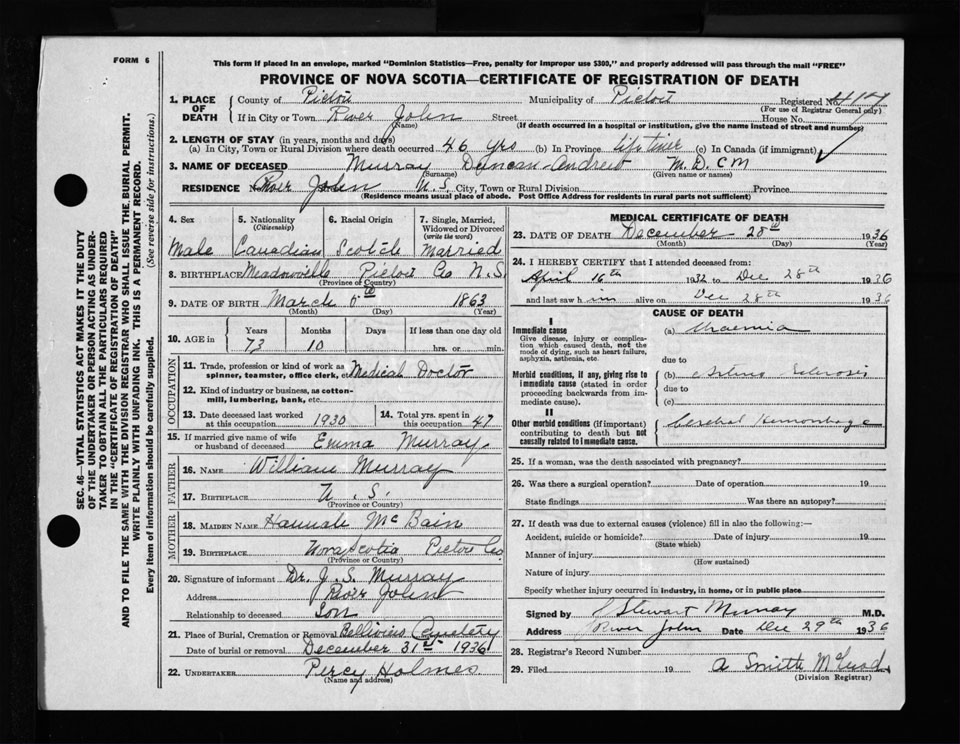 FORM 6
This form if placed in an envelope, marked "Dominion Statistics—Free, penalty for improper use $300," and properly addressed will pass through the mail "FREE"
PROVINCE OF NOVA SCOTIA—CERTIFICATE OF REGISTRATION OF DEATH
1. PLACE OF DEATH County of Pictou Municipality of Pictou Registered No.
(For use of Registrar General only)
If in City or Town River John Street House No.
(Name) (If death occurred in a hospital or institution, give the name instead of street and number)
2. LENGTH OF STAY (in years, months and days)
(a) In City, Town or Rural Division where death occurred 46 yrs (b) In Province life time (c) In Canada (if immigrant)
3. NAME OF DECEASED Murray Duncan Andrew M.D. CM
(Surname) (Given name or names)
RESIDENCE No. River John N.S. City, Town or Rural Division Province
(Residence means usual place of abode. Post Office Address for residents in rural parts not sufficient)
4. Sex Male
5. Nationality (Citizenship) Canadian
6. Racial Origin Scotch
7. Single, Married, Widowed or Divorced (write the word) Married
8. BIRTHPLACE Meadowville Pictou Co N.S.
(Province or Country)
9. DATE OF BIRTH March 1863
(Month) (Day) (Year)
10. AGE in Years Months Days If less than one day old
73 10 hrs. or min.
OCCUPATION
11. Trade, profession or kind of work as spinner, teamster, office clerk, etc. Medical Doctor
12. Kind of industry or business, as cotton-mill, lumbering, bank, etc.
13. Date deceased last worked at this occupation 1930
14. Total yrs. spent in this occupation 47
15. If married give name of wife or husband of deceased Emma Murray
FATHER
16. NAME William Murray
17. BIRTHPLACE N.S.
(Province or Country)
MOTHER
18. MAIDEN NAME Hannah McBain
19. BIRTHPLACE Nova Scotia Pictou Co
(Province or Country)
20. Signature of informant Dr. J. S. Murray
Address River John
Relationship to deceased Son
21. Place of Burial, Cremation or Removal
Date of burial or removal December 31st 1936
22. UNDERTAKER Percy Holmes
(Name and address)
MEDICAL CERTIFICATE OF DEATH
23. DATE OF DEATH December 28th 1936
(Month) (Day) (Year)
24. I HEREBY CERTIFY that I attended deceased from:
April 16th 1932 to Dec 28th 1936
and last saw him alive on Dec 28th 1936
CAUSE OF DEATH
I
Immediate cause (a) Uraemia
Give disease, injury or complication which caused death, not the mode of dying, such as heart failure, asphyxia, asthenia, etc.
due to
Morbid conditions, if any, giving rise to immediate cause (stated in order proceeding backwards from immediate cause). (b) Arterio Sclerosis
due to
(c)
II
Other morbid conditions (if important) contributing to death but not causally related to immediate cause. Cerebral Hemorrhage
25. If a woman, was the death associated with pregnancy?
26. Was there a surgical operation? Date of operation 19
State findings Was there an autopsy?
27. If death was due to external causes (violence) fill in also the following:—
Accident, suicide or homicide? Date of injury 19
(State which)
Manner of injury
(How sustained)
Nature of injury
Specify whether injury occurred in industry, in home, or in public place
Signed by J Stewart Murray M.D.
Address River John Date Dec 29th 1936
28. Registrar's Record Number
29. Filed 19 A Smith McLeod
(Division Registrar)
SEC. 46—VITAL STATISTICS ACT MAKES IT THE DUTY
OF THE UNDERTAKER OR PERSON ACTING AS UNDER-
TAKER TO OBTAIN ALL THE PARTICULARS REQUIRED
IN THE "CERTIFICATE OF REGISTRATION OF DEATH"
AND TO FILE THE SAME WITH THE DIVISION REGISTRAR WHO SHALL ISSUE THE BURIAL PERMIT.
WRITE PLAINLY WITH UNFADING INK. THIS IS A PERMANENT RECORD.
Every item of information should be carefully supplied. (See reverse side for instructions.)